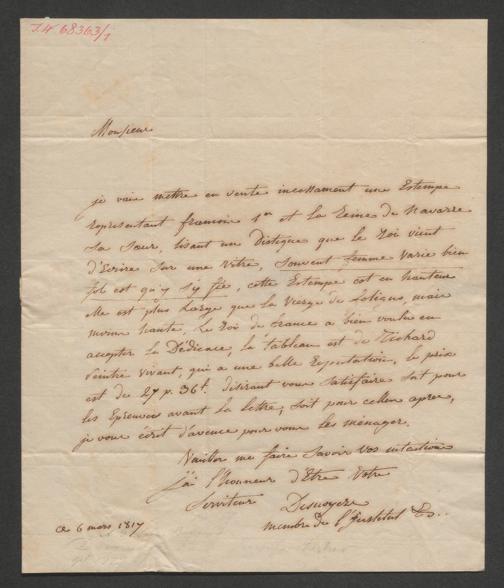 I.N 68363/1
Monsieur
je vais mettre en vente incessament une Estampe
representant francois 1er et la Reine de Navarre
sa sœur, lisant un Distique que le Roi vient
d'Ecrire sur une vitre, souvent femme varie bien
fol est qu'y s'y fie, cette Estampe est en hauteur
elle est plus large que la vierge de foligno, mais
moins haute, le Roi de france a bien voulu en
accepter la Dédicace, le tableau est de Richard
Peintre vivant, qui a une belle Reputation, le prix
est de 27 p. 36f. désirant vous satisfaire soit pour
les Epreuves avant la lettre, soit pour celles apres,
je vous écrit d'avence pour vous les ménager.
Veuillez me faire savoir vos intentions
j'ai l'honneur d'Etre votre
Serviteur Desnoyers
membre de l'Institut &c..
ce 6 mars 1817